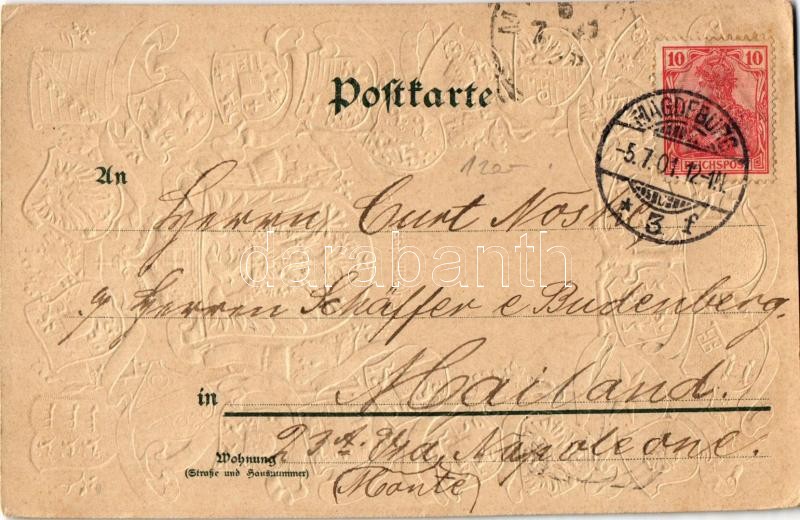 10 10
REICHSPOST
MAGDEBURG
-5.7.01.12-1N.
* 3 f
Postkarte
1200-
An
Herrn Curt Noske
p/ Herren Schäffer & Budenberg.
in Mailand.
Wohnung
(Straße und Hausnummer)
Napoleone.
(Monte)
darabanth